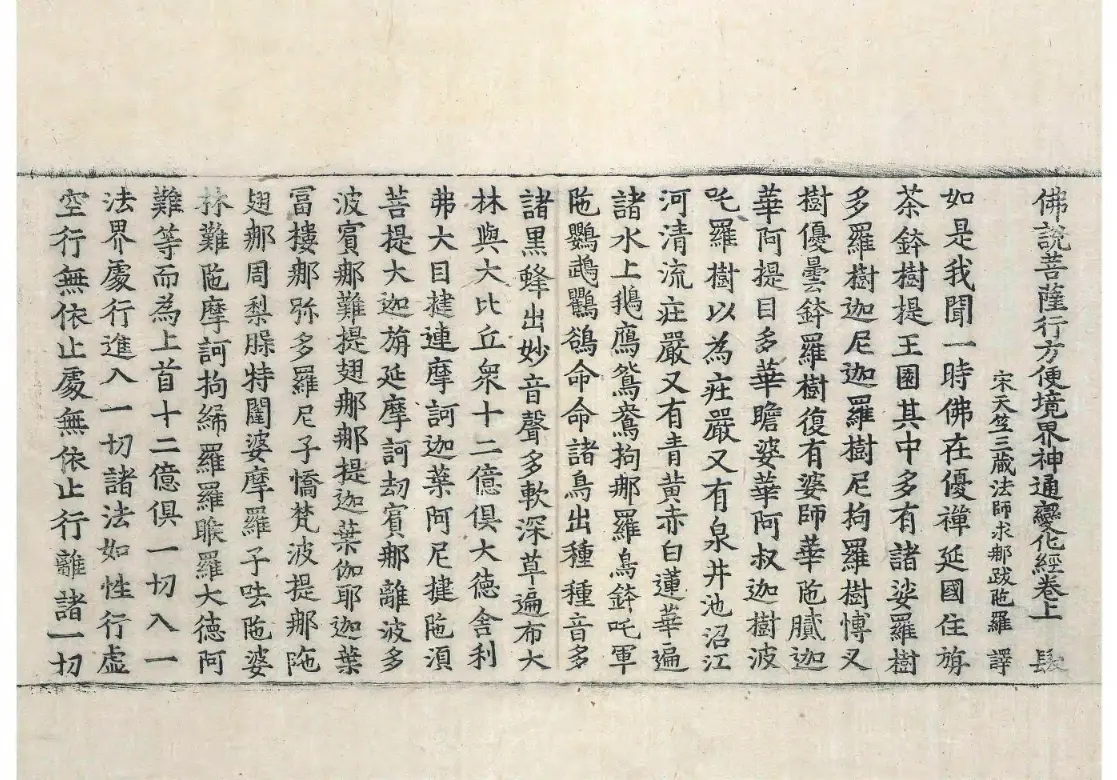 佛說菩薩行方便境界神通變化經卷上 長
宋天竺三藏法師求那跋陁羅 譯
如是我聞一時佛在優禪延國住旃
茶鉢樹提王園其中多有諸娑羅樹
多羅樹迦尼迦羅樹尼拘羅樹愽叉
樹優曇鉢羅樹復有婆師華陁膩迦
華阿提目多華瞻婆華阿叔迦樹波
吒羅樹以為庄嚴又有泉井池沼江
河清流庄嚴又有青黃赤白蓮華遍
諸水上鵝鴈鴛鴦拘那羅鳥鉢吒軍
陁鸚鵡鸜鵒命命諸鳥出種種音多
諸黑蜂出妙音聲多軟深草遍布大
林與大比丘眾十二億俱大德舍利
弗大目揵連摩訶迦葉阿尼揵陁湏
菩提大迦旃延摩訶劫賓那離波多
波賓那難提翅那那提迦葉伽耶迦葉
冨樓那弥多羅尼子憍梵波提那陁
翅那周梨髀特闍婆摩羅子呿陁婆
林難陁摩訶拘絺羅羅睺羅大德阿
難等而為上首十二億俱一切入一
法界處行進入一切諸法如性行虛
空行無依止處無依止行離諸一切